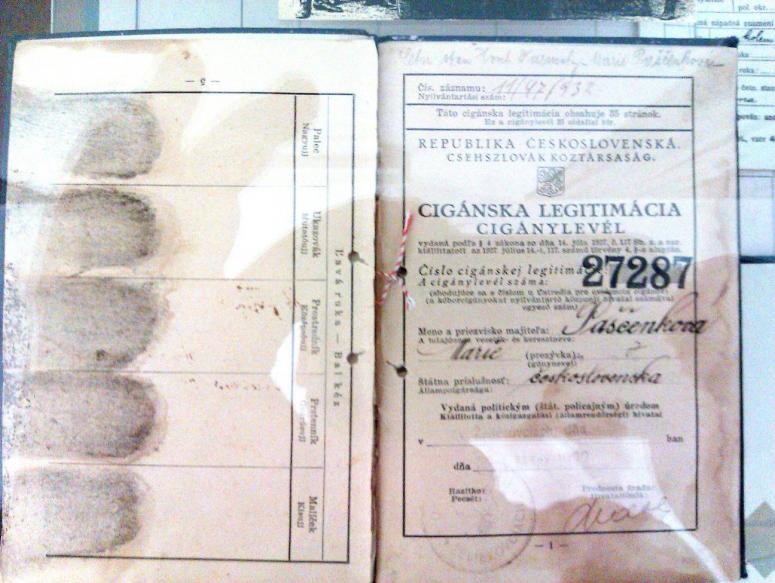 — 5 —
Palec
Nagyujj
Ukazovák
Mutatóujj
Prostredník
Középujj
Prstenník
Malíček
Kisujj
Ľavá ruka — Bal kéz
Marie Paščenkova
Čís. záznamu: 11/97/932
Nyilvántartási szám:
Tato cigánska legitimácia obsahuje 35 stránok.
Ez a cigánylevél 35 oldallal bír.
REPUBLIKA ČESKOSLOVENSKÁ.
CSEHSZLOVÁK KÖZTÁRSASÁG.
CIGÁNSKA LEGITIMÁCIA
CIGÁNYLEVÉL
vydaná podľa § 4 zákona zo dňa 14. júla 1927, č. 117 Sb. z. a nar.
kiállíttatott az 1927. július 14.-i, 117. számú törvény 4. §-a alapján.
Číslo cigánskej legitimácie: 27287
A cigánylevél száma:
(shodujúce sa s číslom u Ústredia pre evidenciu cigánov)
(a kóborcigányokat nyilvántartó központi hivatal számával
egyező szám)
Meno a priezvisko majiteľa: Paščenkova
A tulajdonos vezeték- és keresztneve:
Marie (prezývka):
(gúnyneve)
Štátna príslušnosť: československa
Állampolgársága:
Vydaná politickým (štát. policajným) úradom
Kiállította a közigazgatási (államrendőrségi) hivatal
v ban
dňa
Razítko:
Pecsét:
Prednosta úradu:
— 1 —
pol. okr.